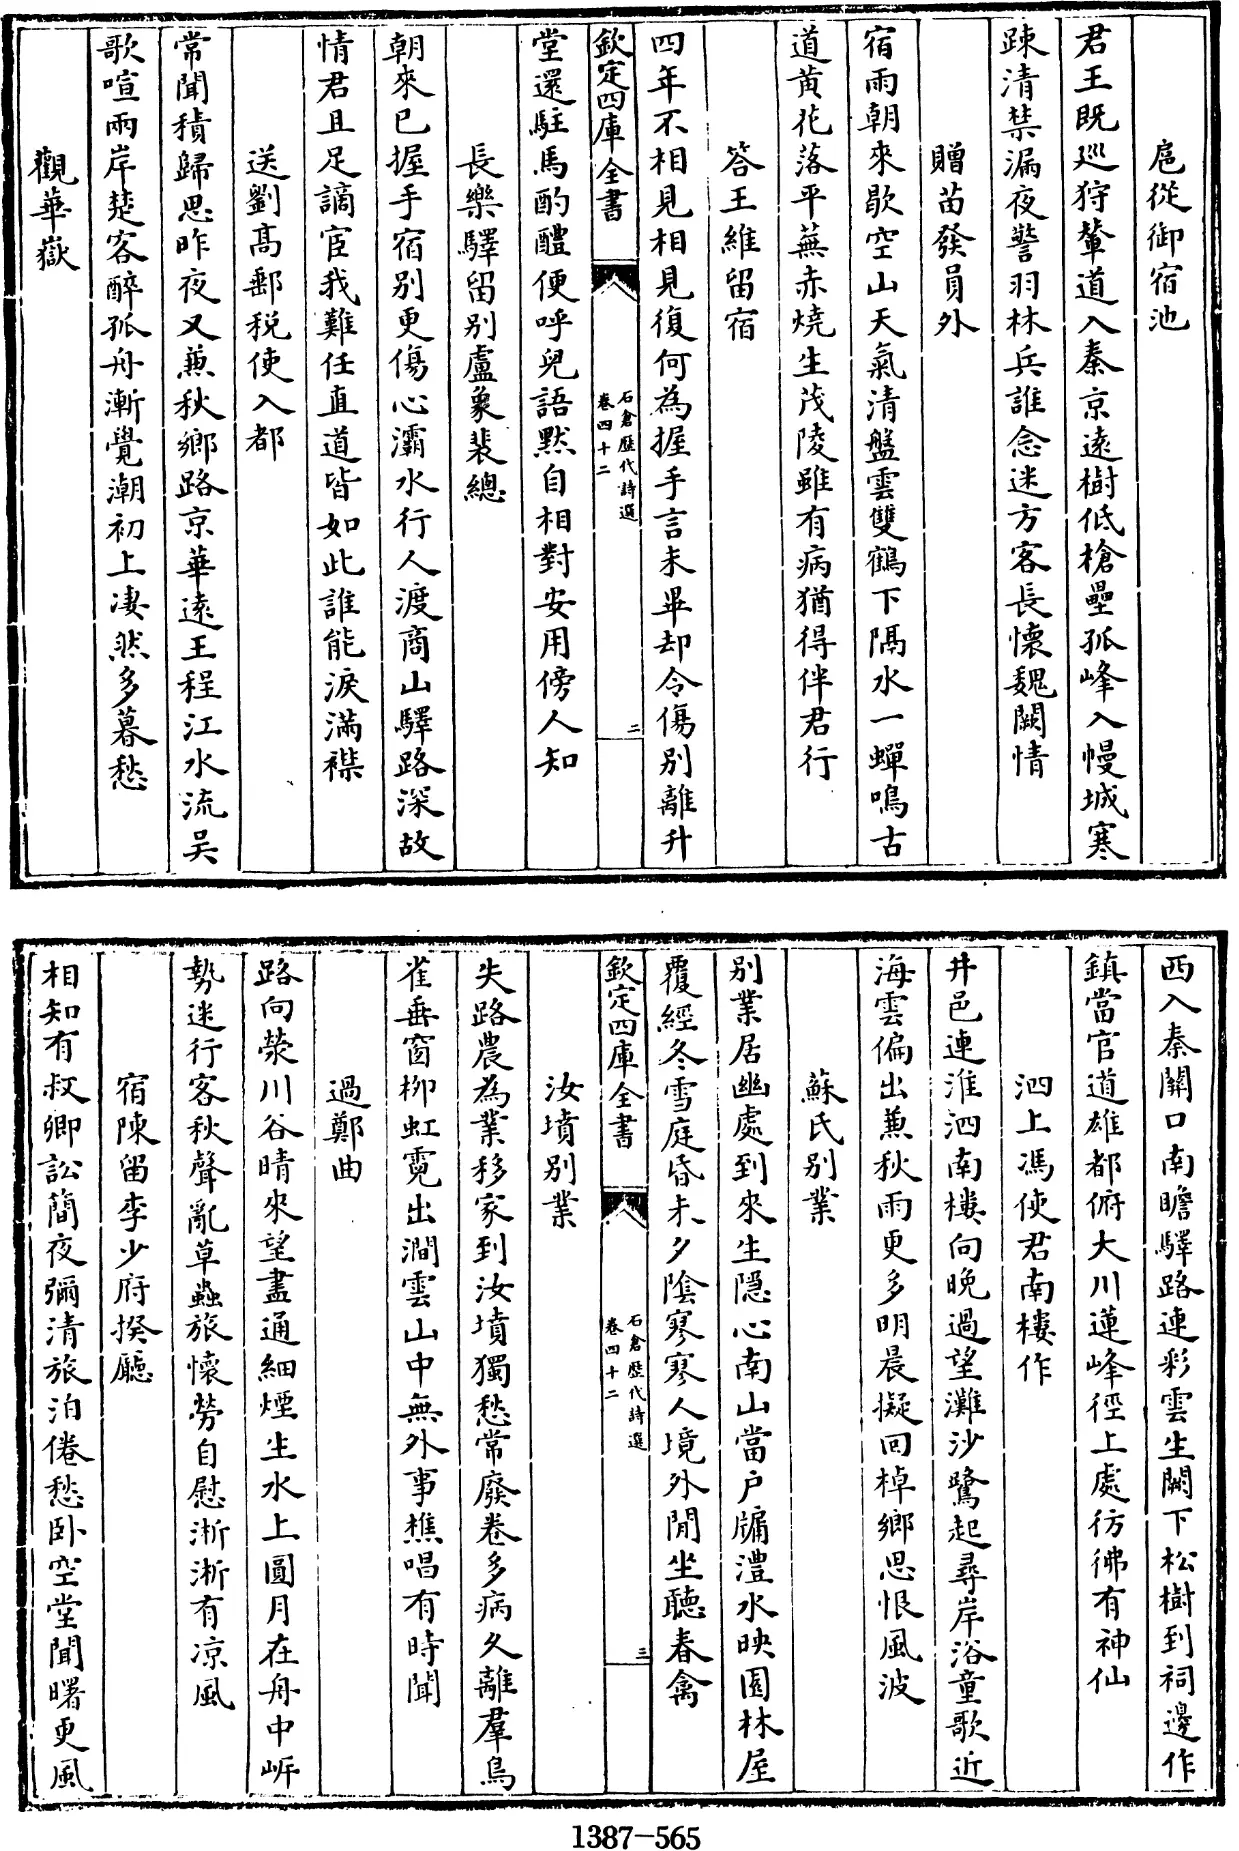 扈從御宿池
君王既巡狩輦道入秦京遠樹低槍壘孤峰入幔城寒
踈清禁漏夜警羽林兵誰念迷方客長懷魏闕情
贈苗發員外
宿雨朝來歇空山天氣清盤雲雙鶴下隔水一蟬鳴古
道黄花落平蕪赤燒生茂陵雖有病猶得伴君行
答王維留宿
四年不相見相見復何為握手言未畢却令傷别離升
欽定四庫全書
石倉歷代詩選
卷四十二
二
堂還駐馬酌醴便呼兒語黙自相對安用傍人知
長樂驛留别盧象裴總
朝來已握手宿别更傷心灞水行人渡商山驛路深故
情君且足謫宦我難任直道皆如此誰能淚滿襟
送劉髙郵税使入都
常聞積歸思昨夜又兼秋鄉路京華遠王程江水流吴
歌喧兩岸楚客醉孤舟漸覺潮初上凄然多暮愁
觀華嶽
西入秦關口南瞻驛路連彩雲生闕下松樹到祠邊作
鎮當官道雄都俯大川蓮峰徑上處彷彿有神仙
泗上馮使君南樓作
井邑連淮泗南樓向晚過望灘沙鷺起尋岸浴童歌近
海雲偏出兼秋雨更多明晨擬回棹鄉思恨風波
蘇氏别業
别業居幽處到來生隠心南山當户牖澧水映園林屋
覆經冬雪庭昏未夕陰寥寥人境外閒坐聽春禽
欽定四庫全書
石倉歷代詩選
卷四十二
三
汝墳别業
失路農為業移家到汝墳獨愁常廢卷多病久離羣鳥
雀垂窗柳虹霓出澗雲山中無外事樵唱有時聞
過鄭曲
路向滎川谷晴來望盡通細煙生水上圓月在舟中㟁
勢迷行客秋聲亂草蟲旅懷勞自慰淅淅有凉風
宿陳留李少府揆廳
相知有叔卿訟簡夜彌清旅泊倦愁卧空堂聞曙更風
1387-565